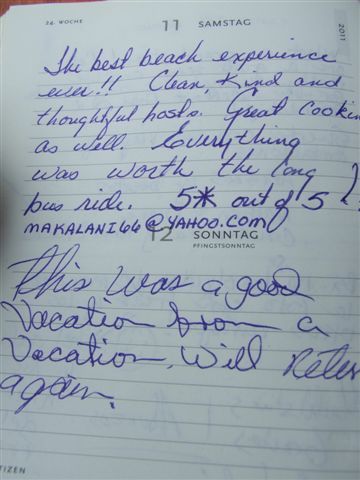 24. WOCHE 11 SAMSTAG 2011
The best beach experience
ever!! Clean, Kind and
thoughtful hosts. Great cookin
as well. Everything
was worth the long
bus ride. 5* out of 5
MAKALANI66@YAHOO.COM
12 SONNTAG
PFINGSTSONNTAG
This was a good
Vacation from a
Vacation. Will Reter
again.
TIZEN